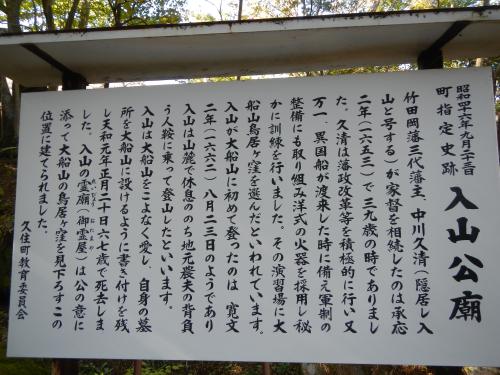 昭和四六年九月二三日
町指定史跡
入山公廟
竹田岡藩三代藩主、中川久清(隠居し入
山と号する)が家督を相続したのは承応
二年(一六五三)で三九歳の時でありまし
た。久清は藩政改革等を積極的に行い又
万一、異国船が渡来した時に備え軍制の
整備にも取り組み洋式の火器を採用し秘
かに訓練を行いました。その演習場に大
船山鳥居ヶ窪を選んだといわれています。
入山が大船山に初めて登ったのは 寛文
二年(一六六二)八月二三日のようであり
入山は山麓で休息ののち地元農夫の背負
う人鞍に乗って登山したといいます。
入山は大船山をこよなく愛し、自身の墓
所を大船山に設けるように書き付けを残
し天和元年正月二十日六七歳で死去しま
した。入山の霊廟(御霊屋)は公の意に
添って大船山の鳥居ヶ窪を見下ろすこの
位置に建てられました。
久住町教育委員会